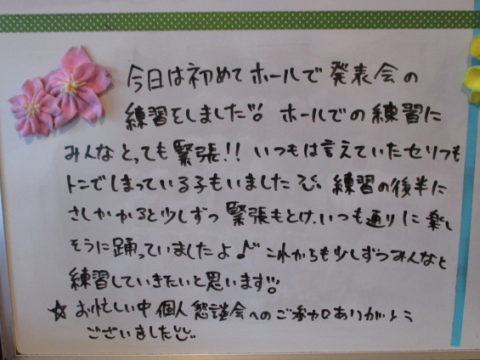 今日は初めてホールで発表会の
練習をしました!! ホールでの練習に
みんなとっても緊張!! いつもは言えていたセリフも
トンでしまっている子もいました 練習の後半に
さしかかると少しずつ緊張もとけ、いつも通りに楽し
そうに踊っていましたよ♪ これからも少しずつみんなと
練習していきたいと思います!!
☆お忙しい中個人懇談会へのご参加ありがとう
ございました